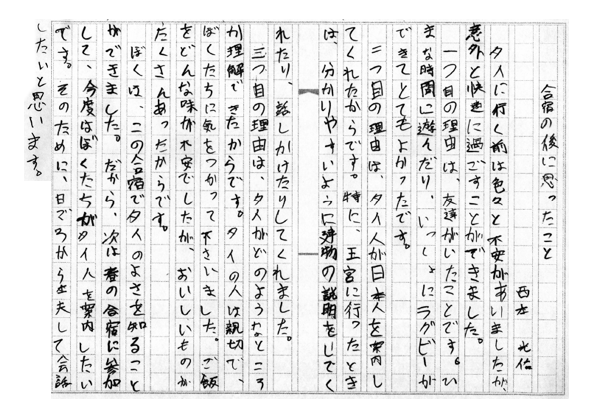 合宿の後に思ったこと
西本 光佑
タイに行く前は色々と不安がありましたが、
意外と快適に過ごすことができました。
一つ目の理由は、友達がいたことです。ひ
まな時間に遊んだり、いっしょにラグビーが
できてとてもよかったです。
二つ目の理由は、タイ人が日本人を案内し
てくれたからです。特に、王宮に行ったとき
は、分かりやすいように建物の説明をしてく
れたり、話しかけたりしてくれました。
三つ目の理由は、タイがどのようなところ
か理解できたからです。タイの人は親切で、
ぼくたちに気をつかって下さいました。ご飯
もどんな味か不安でしたが、おいしいものが
たくさんあったからです。
ぼくは、この合宿でタイのよさを知ること
ができました。だから、次は春の合宿に参加
して、今度はぼくたちがタイ人を案内したい
です。そのために、日ごろから工夫して会話
したいと思います。